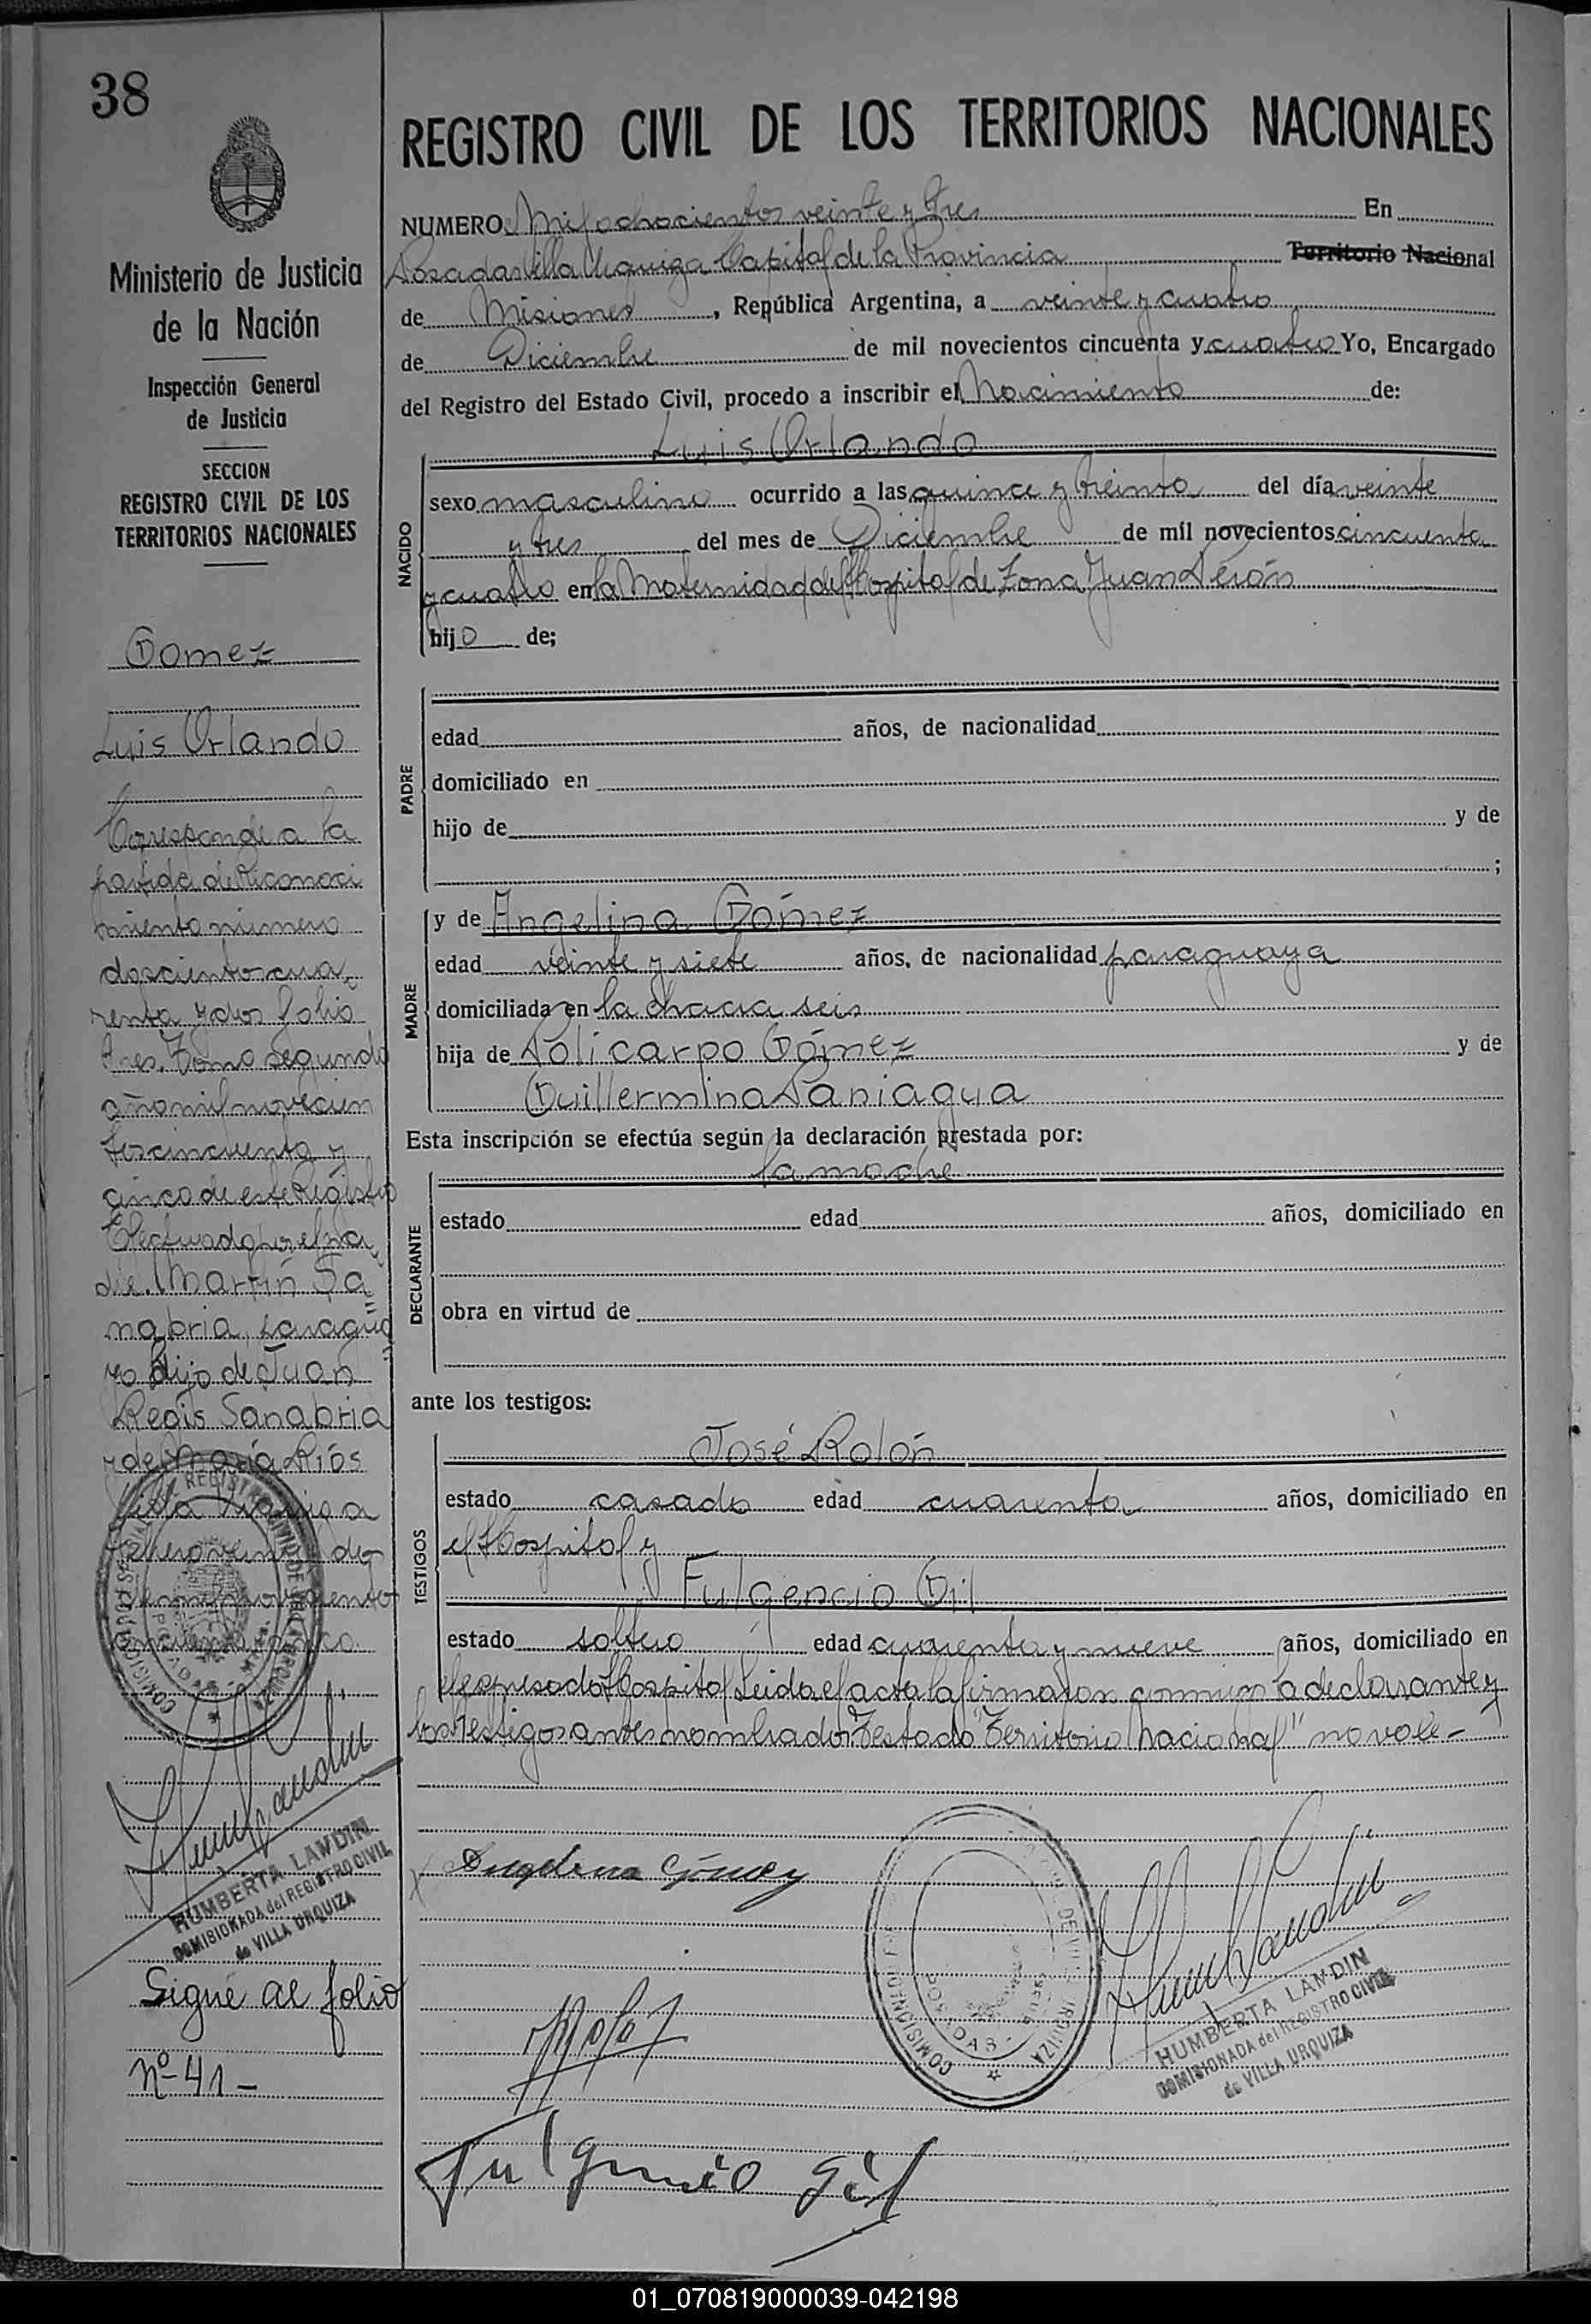 38
Ministerio de Justicia
de la Nación
Inspección General
de Justicia
SECCION
REGISTRO CIVIL DE LOS
TERRITORIOS NACIONALES
Gomez
Luis Orlando
Corresponde a la
partida de Reconoci
miento número
doscientos cua
renta y dos folio
tres. Tomo segundo
año mil novecien
tos cincuenta y
cinco de este Registro
Efectuado por el pa
dre. Martín Sa
nabria, paragua
yo hijo de Juan
Regis Sanabria
y de María Ríos
Villa Urquiza
HUMBERTA LANDIN
COMISIONADA del REGISTRO CIVIL
de VILLA URQUIZA
Sigue al folio
Nº 41-
REGISTRO CIVIL DE LOS TERRITORIOS NACIONALES
NUMERO Mil ochocientos veinte y tres En
Posadas Villa Urquiza Capital de la Provincia Territorio Nacional
de Misiones, República Argentina, a veinte y cuatro
de Diciembre de mil novecientos cincuenta y cuatro Yo, Encargado
del Registro del Estado Civil, procedo a inscribir el Nacimiento de:
Luis Orlando
NACIDO
sexo masculino ocurrido a las quince y treinta del día veinte
y tres del mes de Diciembre de mil novecientos cincuenta
y cuatro en la Maternidad del Hospital de Zona Juan Perón
hijo de;
PADRE
edad años, de nacionalidad
domiciliado en
hijo de y de
;
MADRE
y de Angelina Gómez
edad veinte y siete años, de nacionalidad paraguaya
domiciliada en la chacra seis
hija de Policarpo Gómez y de
Guillermina Paniagua
Esta inscripción se efectúa según la declaración prestada por:
la madre
DECLARANTE
estado edad años, domiciliado en
obra en virtud de
ante los testigos:
TESTIGOS
José Rolón
estado casado edad cuarenta años, domiciliado en
el Hospital y
Fulgencio Gil
estado soltero edad cuarenta y nueve años, domiciliado en
el expresado Hospital Leida el acta la firmaron conmigo la declarante y
los testigos antes nombrados Testado "Territorio Nacional" no vale-
Angelina Gómez
HUMBERTA LANDIN
COMISIONADA del REGISTRO CIVIL
de VILLA URQUIZA
Fulgencio Gil
01_070819000039-042198